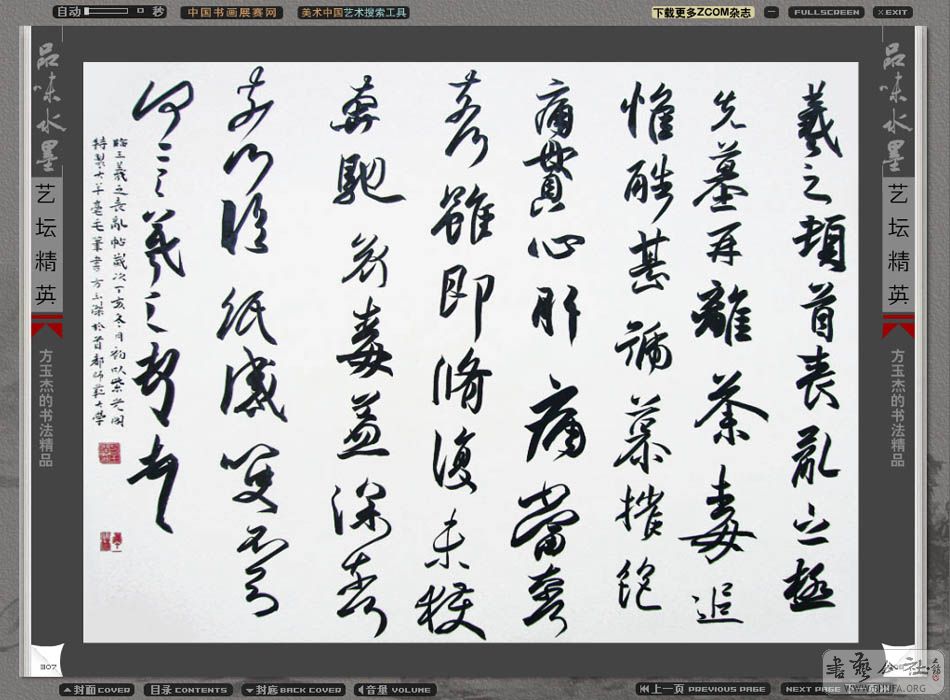 自动 秒 中国书画展赛网 美术中国艺术搜索工具 下载更多ZCOM杂志 FULLSCREEN ×EXIT
品味水墨
艺坛精英
方玉杰的书法精品
羲之頓首喪亂之極
先墓再離荼毒追
惟酷甚號慕摧絕
痛貫心肝痛當奈何
奈何雖即脩復未獲
奔馳哀毒益深奈何
奈何臨紙感哽不知
何言羲之頓首頓首
臨王羲之喪亂帖歲次丁亥冬月初以紫光閣
特製大羊毫毛筆書方玉杰於首都師範大學
品味水墨
艺坛精英
方玉杰的书法精品
307
书艺公社
WWW.SHUFA.ORG
封面 COVER 目录 CONTENTS 封底 BACK COVER 音量 VOLUME 上一页 PREVIOUS PAGE NEXT PAGE